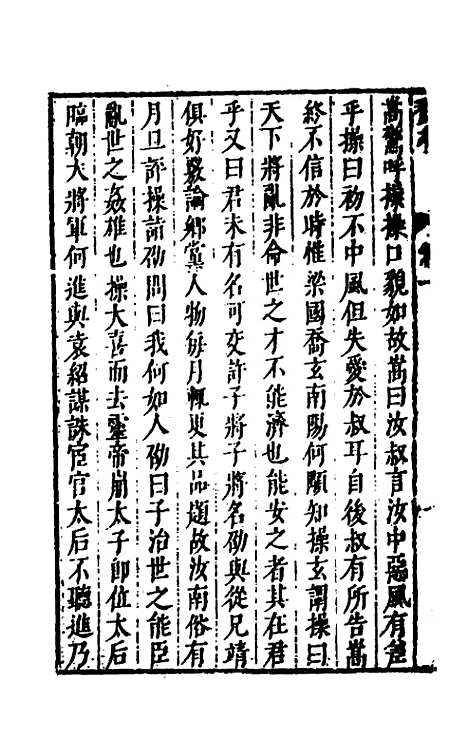 嵩驚呼操操口貌如故嵩曰汝叔言汝中惡風有
乎操曰初不中風但失愛於叔耳自後叔有所告嵩
終不信於時惟梁國喬玄南陽何顒知操玄謂操曰
天下將亂非命世之才不能濟也能安之者其在君
乎又曰君未有名可交許子將子將名劭與從兄靖
俱好覈論鄉黨人物每月輒更其品題故汝南俗有
月旦評操詣劭問曰我何如人劭曰子治世之能臣
亂世之姦雄也操大喜而去靈帝崩太子即位太后
臨朝大將軍何進與袁紹謀誅宦官太后不聽進乃